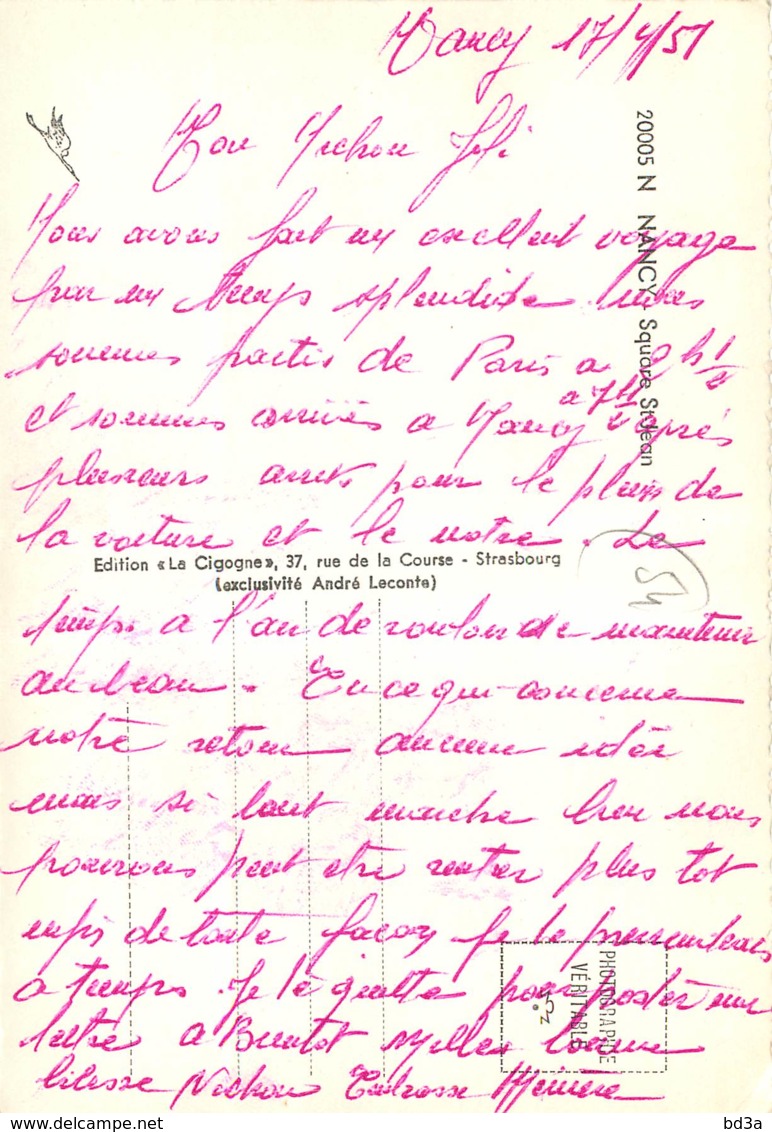 Nancy 17/4/51
Mon Nichou Jofi
20005 N NANCY - Square St-Jean
Nous avons fait un excellent voyage
par un temps splendide nous
sommes partis de Paris a 2h 1/2
et sommes arrivés a Nancy a 7h 1/2 après
plusieurs arrets pour le plein de
la voiture et le notre. Le
Edition «La Cigogne», 37, rue de la Course - Strasbourg
(exclusivité André Leconte)
54
temps a l'air de vouloir se maintenir
au beau. En ce qui concerne
notre retour aucune idée
mais si tout marche bien nous
pourrons peut etre rentrer plus tot
enfin de toute façon je te
a temps. Je te quitte pour poster
lettre a Bientot Milles
Nichou Tendresse
PHOTOGRAPHIE
VÉRITABLE